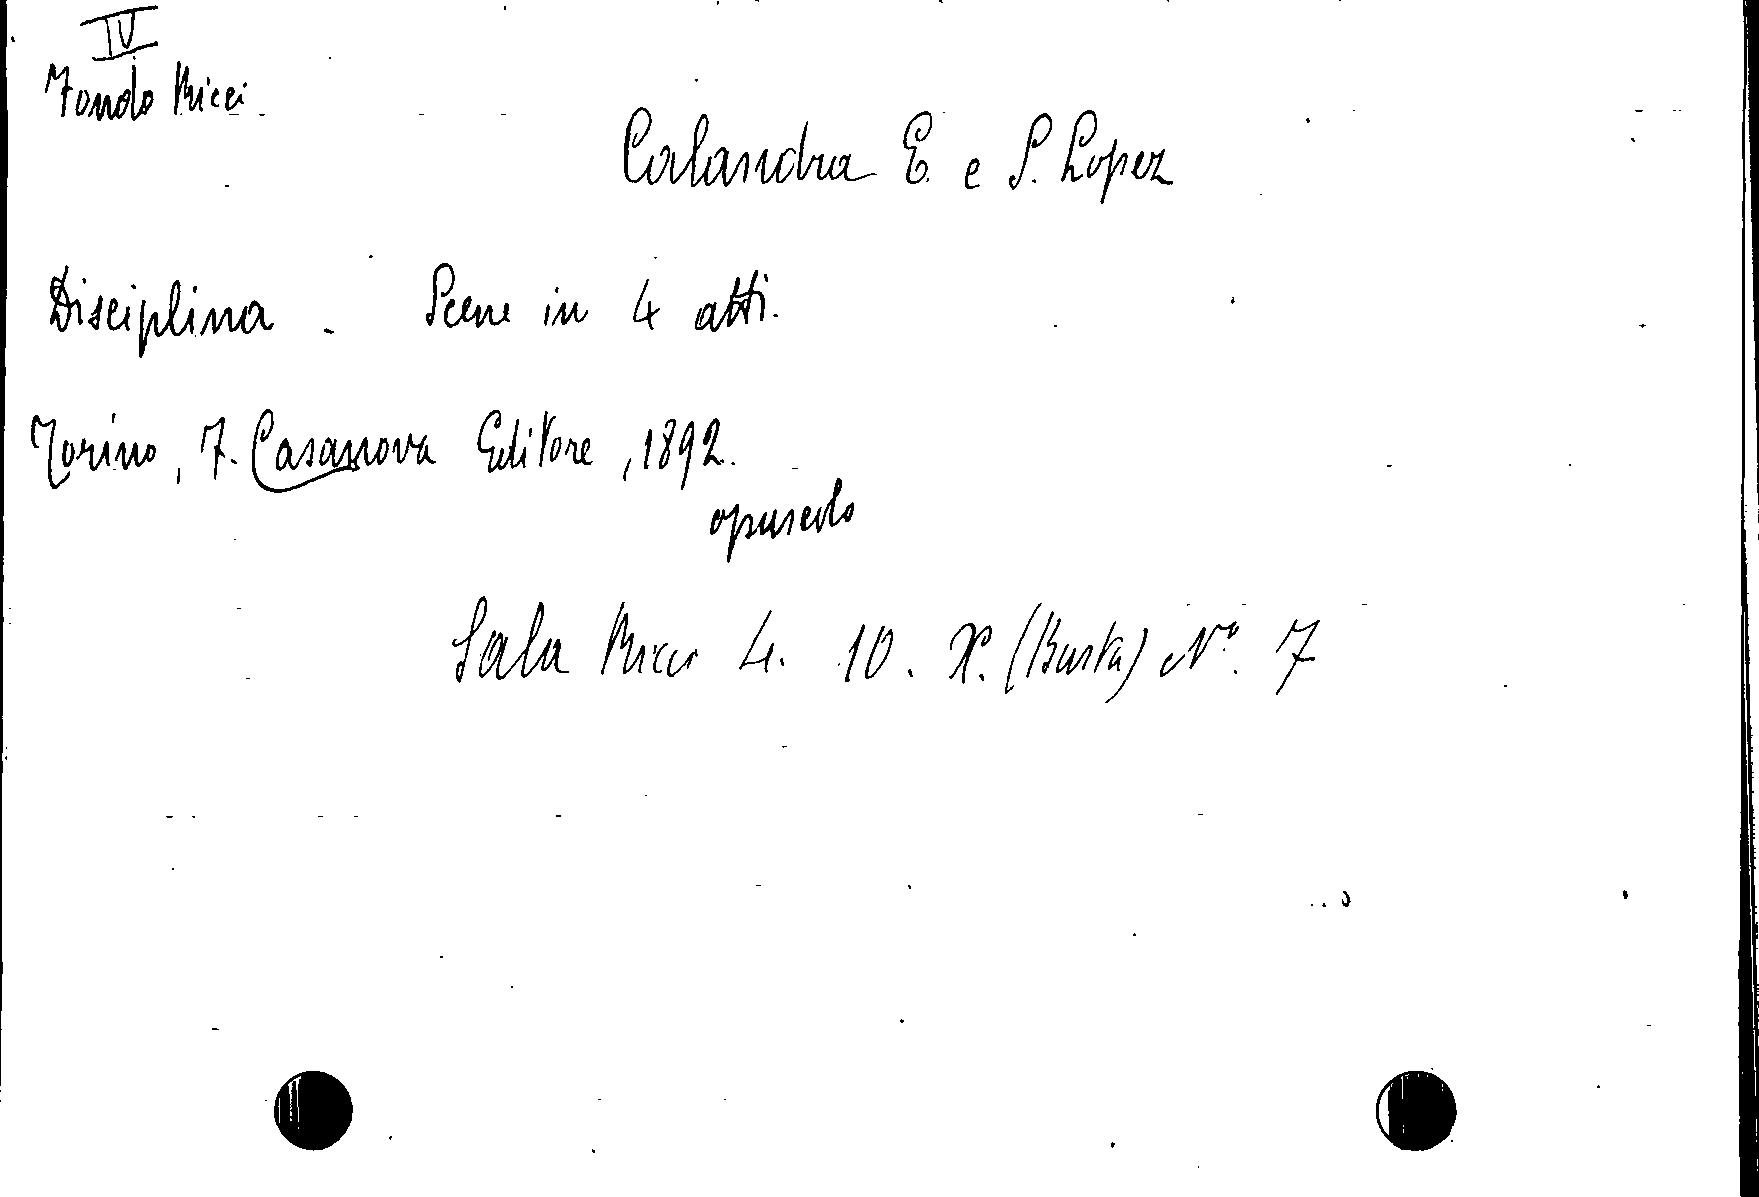 IV
Fondo Ricci
Calandra E. e S. Lopez
Disciplina - Scene in 4 atti.
Torino, F. Casanova Editore, 1892.
opuscolo
Sala Ricci 4. 10. X. (Busta) N° 7